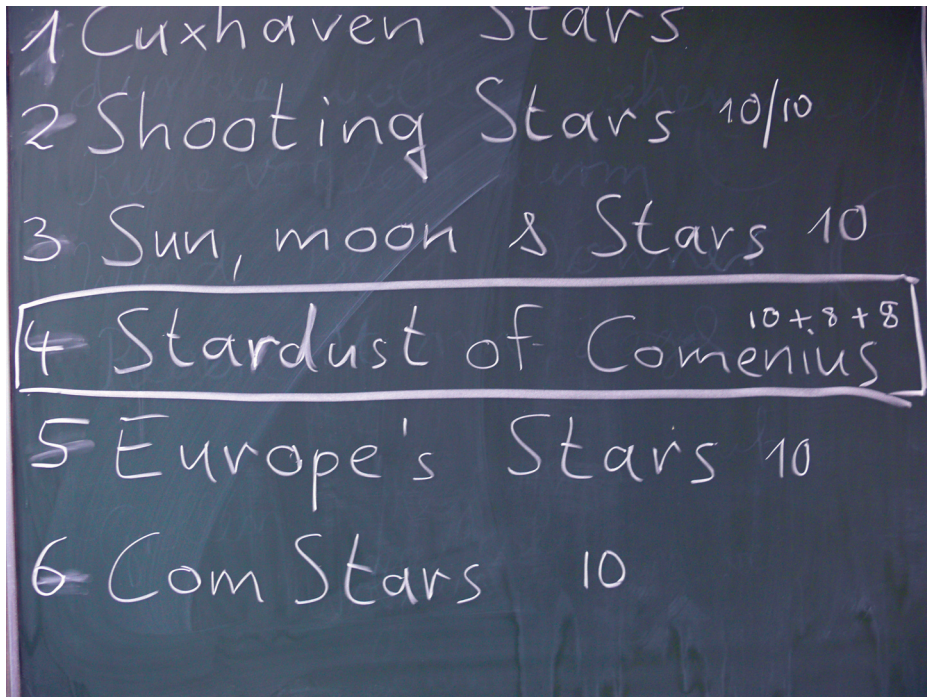 1 Cuxhaven Stars
2 Shooting Stars 10/10
3 Sun, moon & Stars 10
4 Stardust of Comenius 10 + 8 + 8
5 Europe's Stars 10
6 Com Stars 10